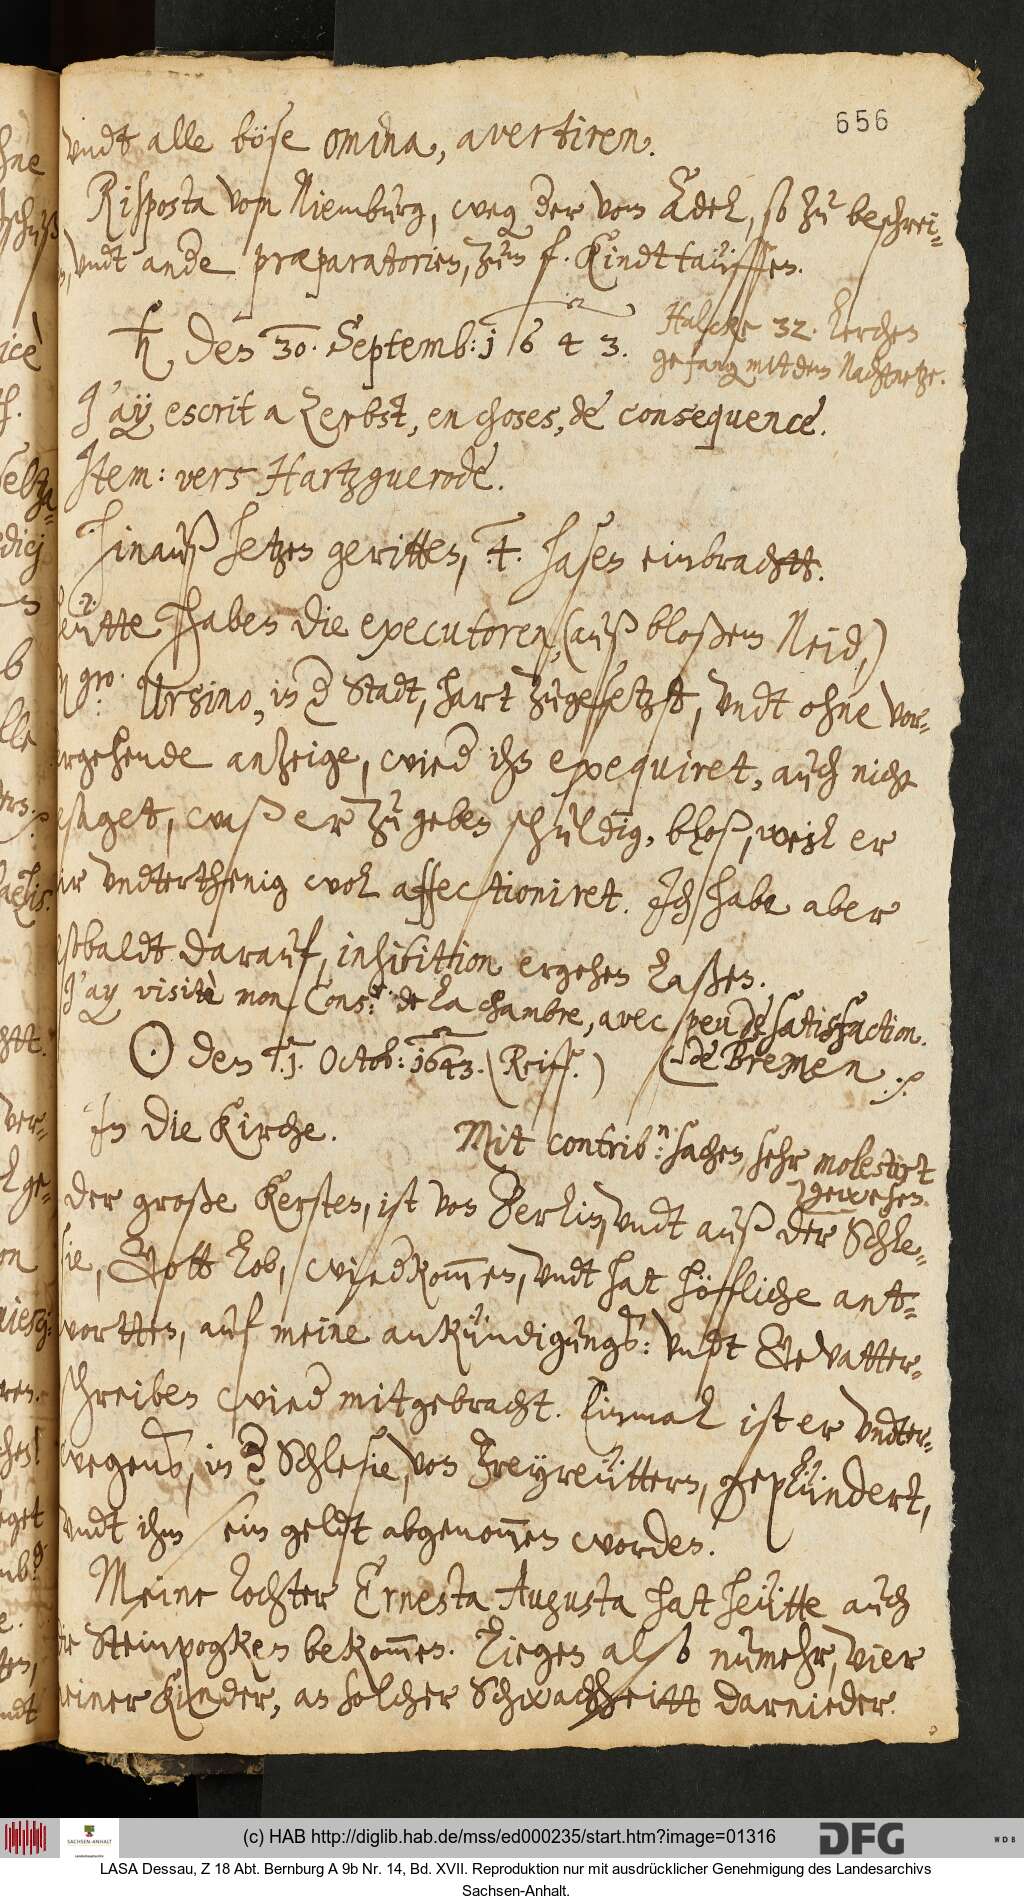 656
undt alle böse omina, avertiren.
Risposta vom Niemburg, weg der von Adel, so zu beschrei-
undt ande præparatorien, zum f. Kindttäuffen.
♄ den 30. Septemb: 1643.
Halcke 32. Lerchen
gefang mit dem Nachtnetze.
J'ay escrit a Zerbst, en choses, de consequence.
Item: vers Hartzguerode.
Hinauß hetzen geritten, 4. hasen einbrachtt.
Heütte haben die executoren, (auß bloßem Neid,)
gro. Ursino, in d Stadt, hart zugesetzt, undt ohne vor-
ergehende anzeige, wied ihn exequiret, auch nicht
gesaget, waß er zu geben schuldig, bloß, weil er
mir undterthenig wol affectioniret. Ich habe aber
alsobaldt darauf, inhibittion ergehen laßen.
J'ay visitè mon Cons.r de la chambre, avec peu de satisfaction.
☉ den 1. Octob: 1643. (Reiff.)
(de Bremen
In die Kirche.
Mit contrib.n: sachen, sehr molestirt
gewesen.
der große Kersten, ist von Berlin, undt auß der Schle-
sie, Gott lob, wiedkommen, undt hat höffliche ant-
wortten, auf meine ankündigungs: undt Gevatter-
schreiben wied mitgebracht. Einmal ist er undter-
wegens, in d Schlesie, von Freyreüttern, geplündert,
undt ihm sein geldt abgenommen worden.
Meine Tochter Ernesta Augusta hat heütte auch
die Steinpogken bekommen. Liegen also numehr, vier
meiner Kinder, an solcher Schwachheitt darnieder.
(c) HAB http://diglib.hab.de/mss/ed000235/start.htm?image=01316
SACHSEN-ANHALT
DFG
WDB
LASA Dessau, Z 18 Abt. Bernburg A 9b Nr. 14, Bd. XVII. Reproduktion nur mit ausdrücklicher Genehmigung des Landesarchivs
Sachsen-Anhalt.